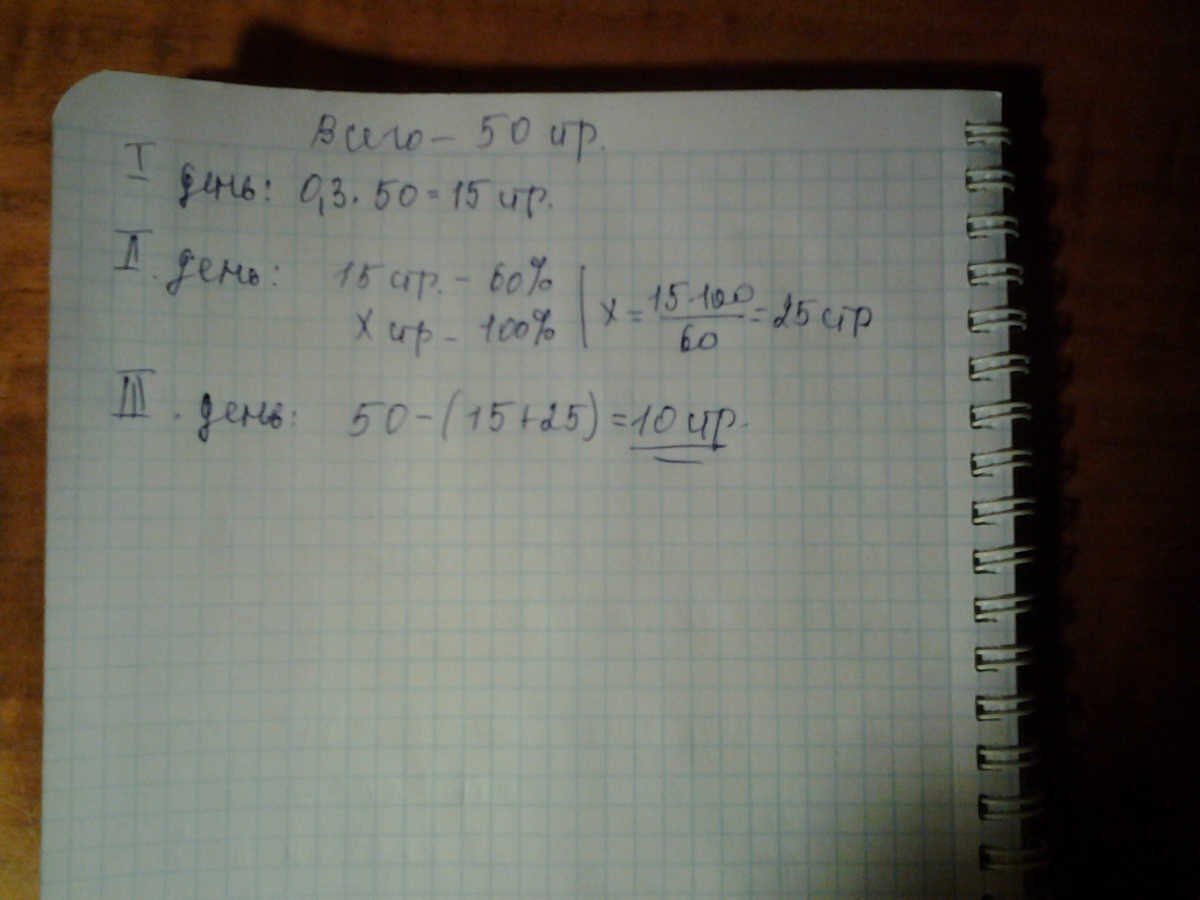 Всего - 50 стр.
I день: 0,3 · 50 = 15 стр.
II. день: 15 стр. - 60%
х стр - 100%
х = 15·100 / 60 = 25 стр
III. день: 50 - (15+25) = 10 стр.